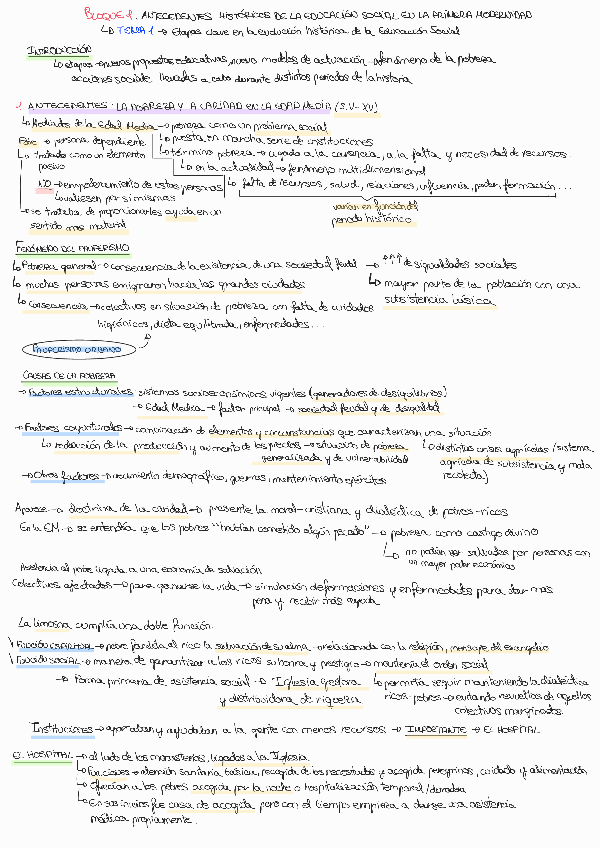 BLOQUE 1. ANTECEDENTES HISTÓRICOS DE LA EDUCACIÓN SOCIAL EN LA PRIMERA MODERNIDAD
↳ TEMA 1 → Etapas clave en la evolución histórica de la Educación Social
INTRODUCCIÓN
↳ etapas → nuevas propuestas educativas, nuevos modelos de actuación → fenómeno de la pobreza
acciones sociales llevadas a cabo durante distintos periodos de la historia
1. ANTECEDENTES: LA POBREZA Y LA CARIDAD EN LA EDAD MEDIA (S.V-XV)
↳ Mediados de la Edad Media → pobreza como un problema social
Pobre → persona dependiente
↳ puesta en marcha serie de instituciones
↳ tratado como un elemento pasivo
↳ término pobreza → ligado a la carencia, a la falta y necesidad de recursos
↳ en la actualidad → fenómeno multidimensional
NO → empoderamiento de estas personas
↳ falta de recursos, salud, relaciones, influencia, poder, formación...
↳ valiesen por sí mismas
varían en función del periodo histórico
→ se trataba de proporcionarles ayuda en un sentido más material
FENÓMENO DEL PAUPERISMO
↳ Pobreza general → consecuencia de la existencia de una sociedad feudal → ↑↑↑ desigualdades sociales
↳ muchas personas emigraron hacia las grandes ciudades
↳ mayor parte de la población con una subsistencia básica
↳ Consecuencia → colectivos en situación de pobreza con falta de cuidados
higiénicos, dieta equilibrada, enfermedades...
PAUPERISMO URBANO
CAUSAS DE LA POBREZA
→ Factores estructurales: sistemas socioeconómicos vigentes (generadores de desequilibrios)
↳ Edad Media → factor principal → sociedad feudal y de desigualdad
→ Factores coyunturales → combinación de elementos y circunstancias que caracterizan una situación
↳ reducción de la producción y aumento de los precios → situación de pobreza generalizada y de vulnerabilidad
↳ distintas crisis agrícolas (sistema agrícola de subsistencia y mala recolecta)
→ Otros factores → crecimiento demográfico, guerras, mantenimiento ejércitos
Aparece → doctrina de la caridad → presente la moral cristiana y dialéctica de pobres-ricos
En la EM → se entendía que los pobres "habían cometido algún pecado" → pobreza como castigo divino
↳ no podían ser salvados por personas con un mayor poder económico
Asistencia al pobre ligada a una economía de salvación
Colectivos afectados → para ganarse la vida → simulación deformaciones y enfermedades para dar más
pena y recibir más ayuda
La limosna cumplía una doble función:
FUNCIÓN ESPIRITUAL → pobre facilita al rico la salvación de su alma → relacionada con la religión, mensaje del evangelio
FUNCIÓN SOCIAL → manera de garantizar a los ricos su honra y prestigio → mantenía el orden social
→ forma primaria de asistencia social → "Iglesia gestora y distribuidora de riqueza
↳ permitía seguir manteniendo la dialéctica ricos-pobres → evitando revueltas de aquellos colectivos marginados
Instituciones → apoyaban y ayudaban a la gente con menos recursos → IMPORTANTE → EL HOSPITAL
EL HOSPITAL → al lado de los monasterios, ligados a la Iglesia
↳ Funciones → atención sanitaria básica, recogida de los necesitados y acogida peregrinos, cuidado y alimentación
↳ Ofrecían a los pobres acogida por la noche o hospitalización temporal/duradera
↳ En sus inicios fue casa de acogida pero con el tiempo empieza a darse una asistencia
médica propiamente.